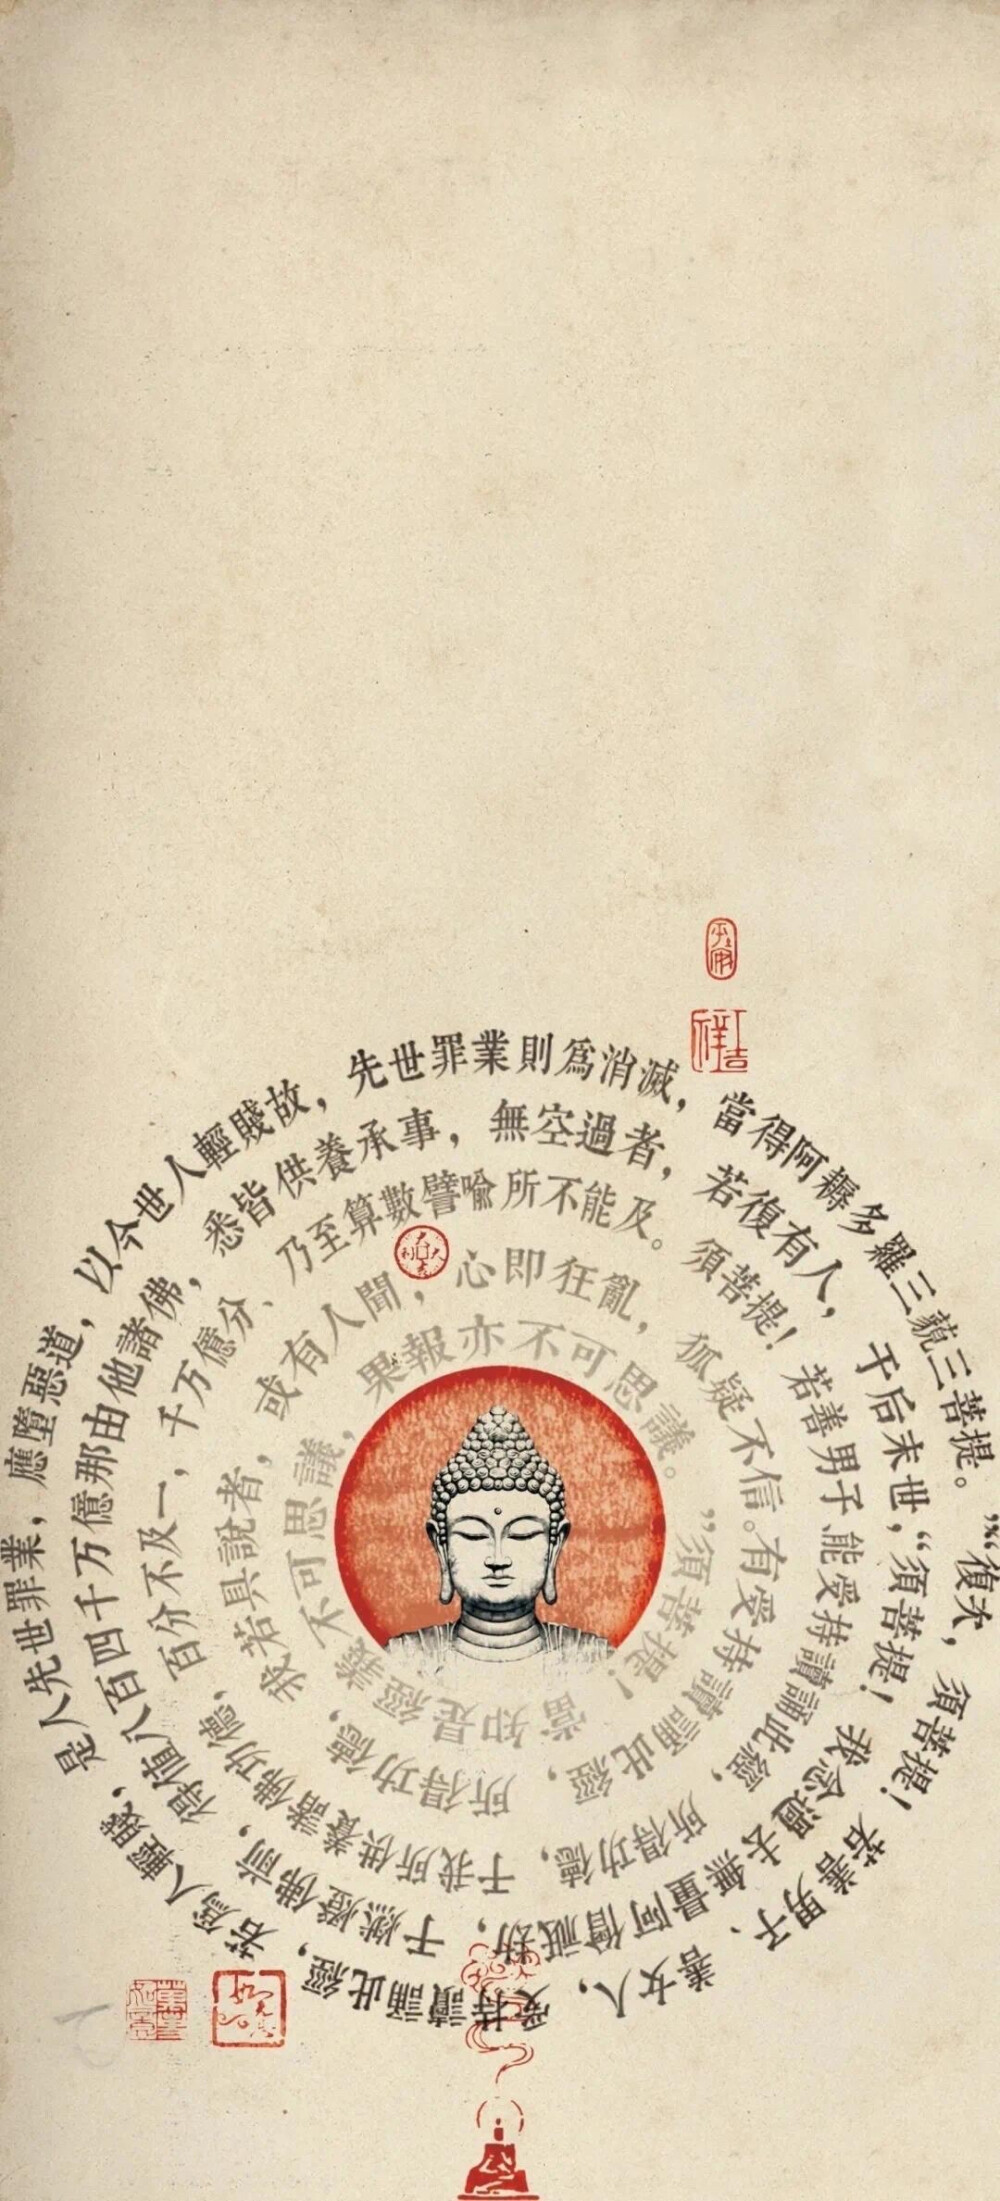 “復次,須菩提!若善男子、善女人,受持讀誦此經,若爲人輕賤,是人先世罪業,應墮惡道,以今世人輕賤故,先世罪業則爲消滅,當得阿耨多羅三藐三菩提。
“須菩提!我念過去無量阿僧祇劫,于燃燈佛前,得值八百四千万億那由他諸佛,悉皆供養承事,無空過者,若復有人,于后末世,
能受持讀誦此經,所得功德,于我所供養諸佛功德,百分不及一,千万億分、乃至算數譬喻所不能及。須菩提!若善男子
有受持讀誦此經,所得功德,我若具說者,或有人聞,心即狂亂,狐疑不信。
“須菩提!當知是經義不可思議,果報亦不可思議。
吉祥
大吉大利